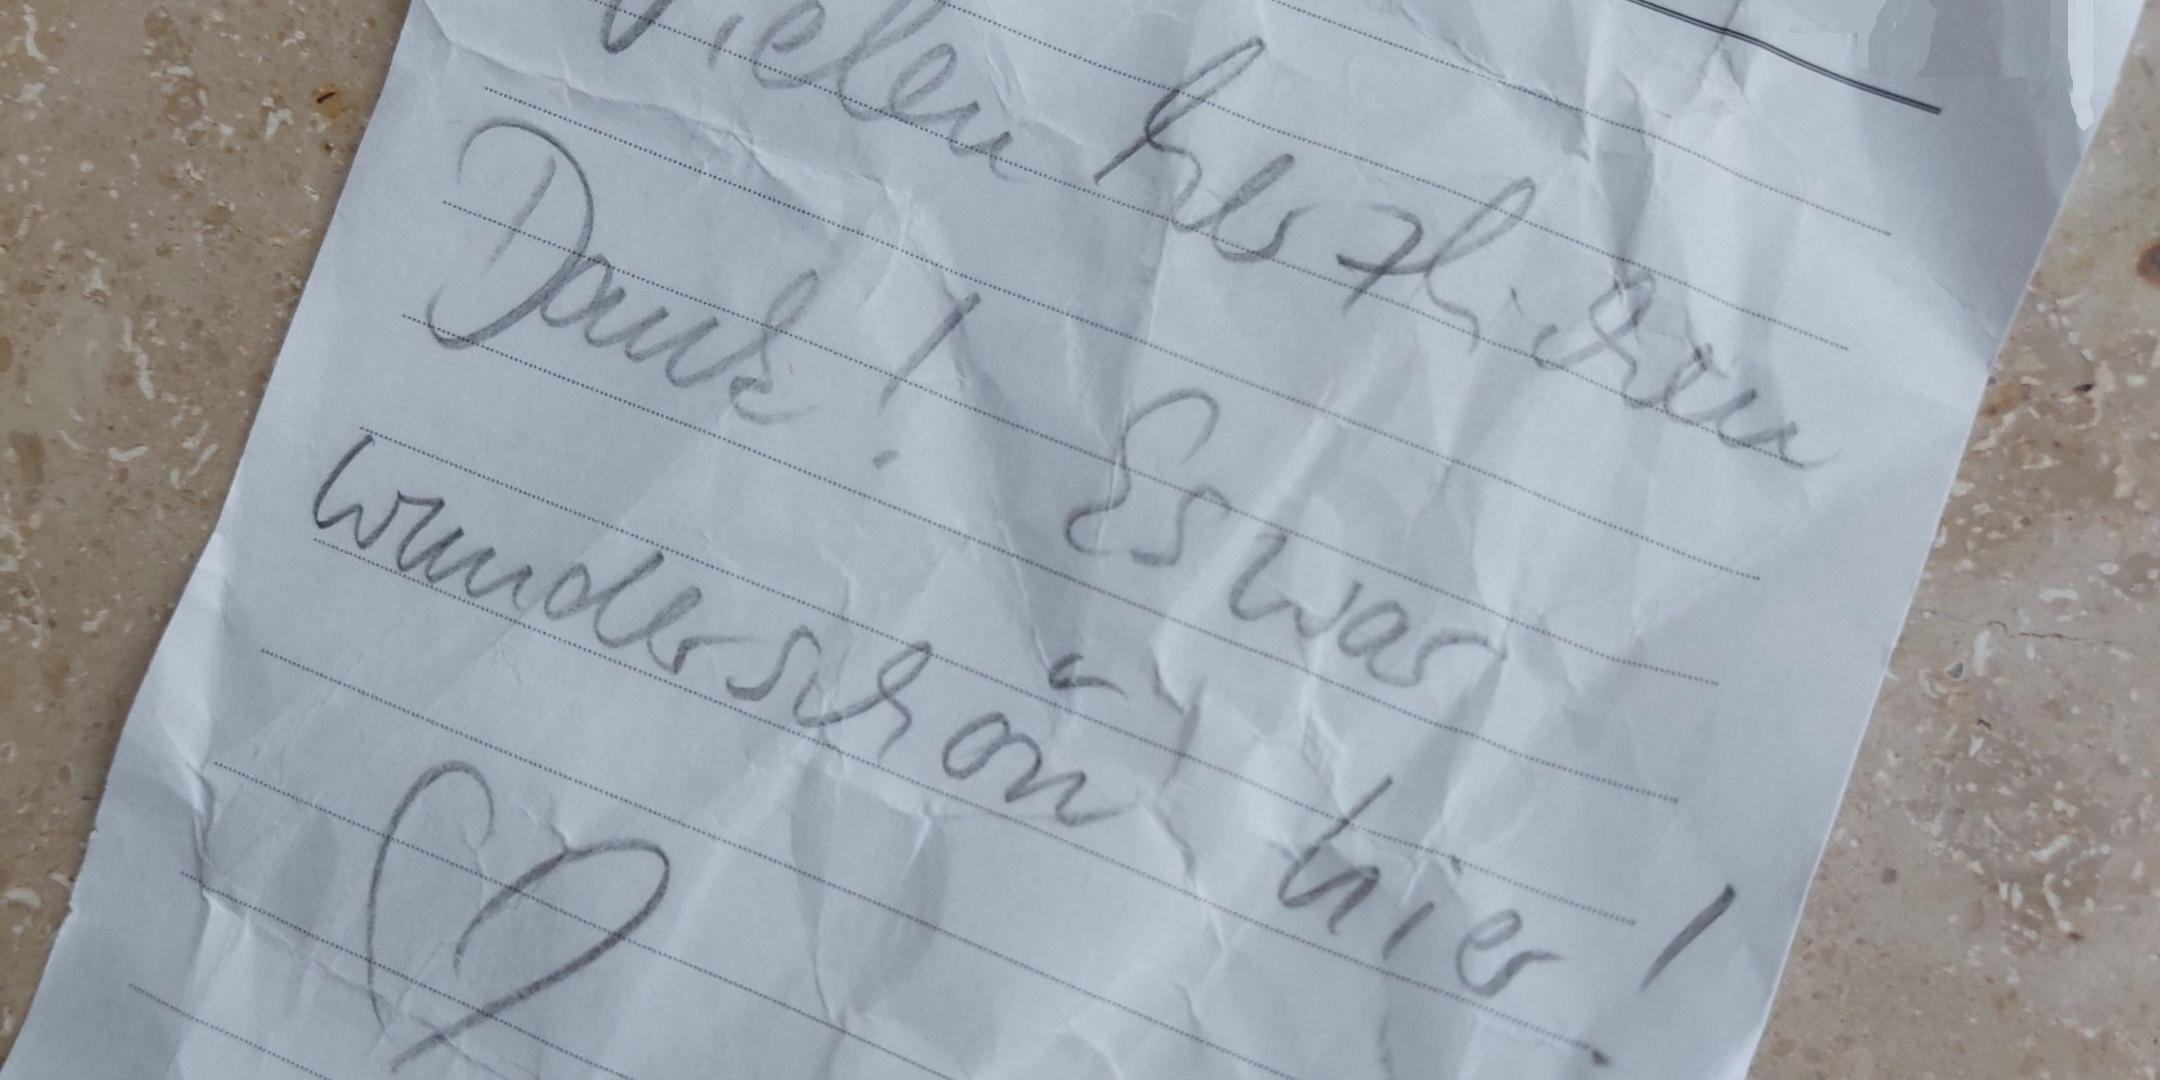 Vielen herzlichen
Dank! Es war
wunderschön hier!